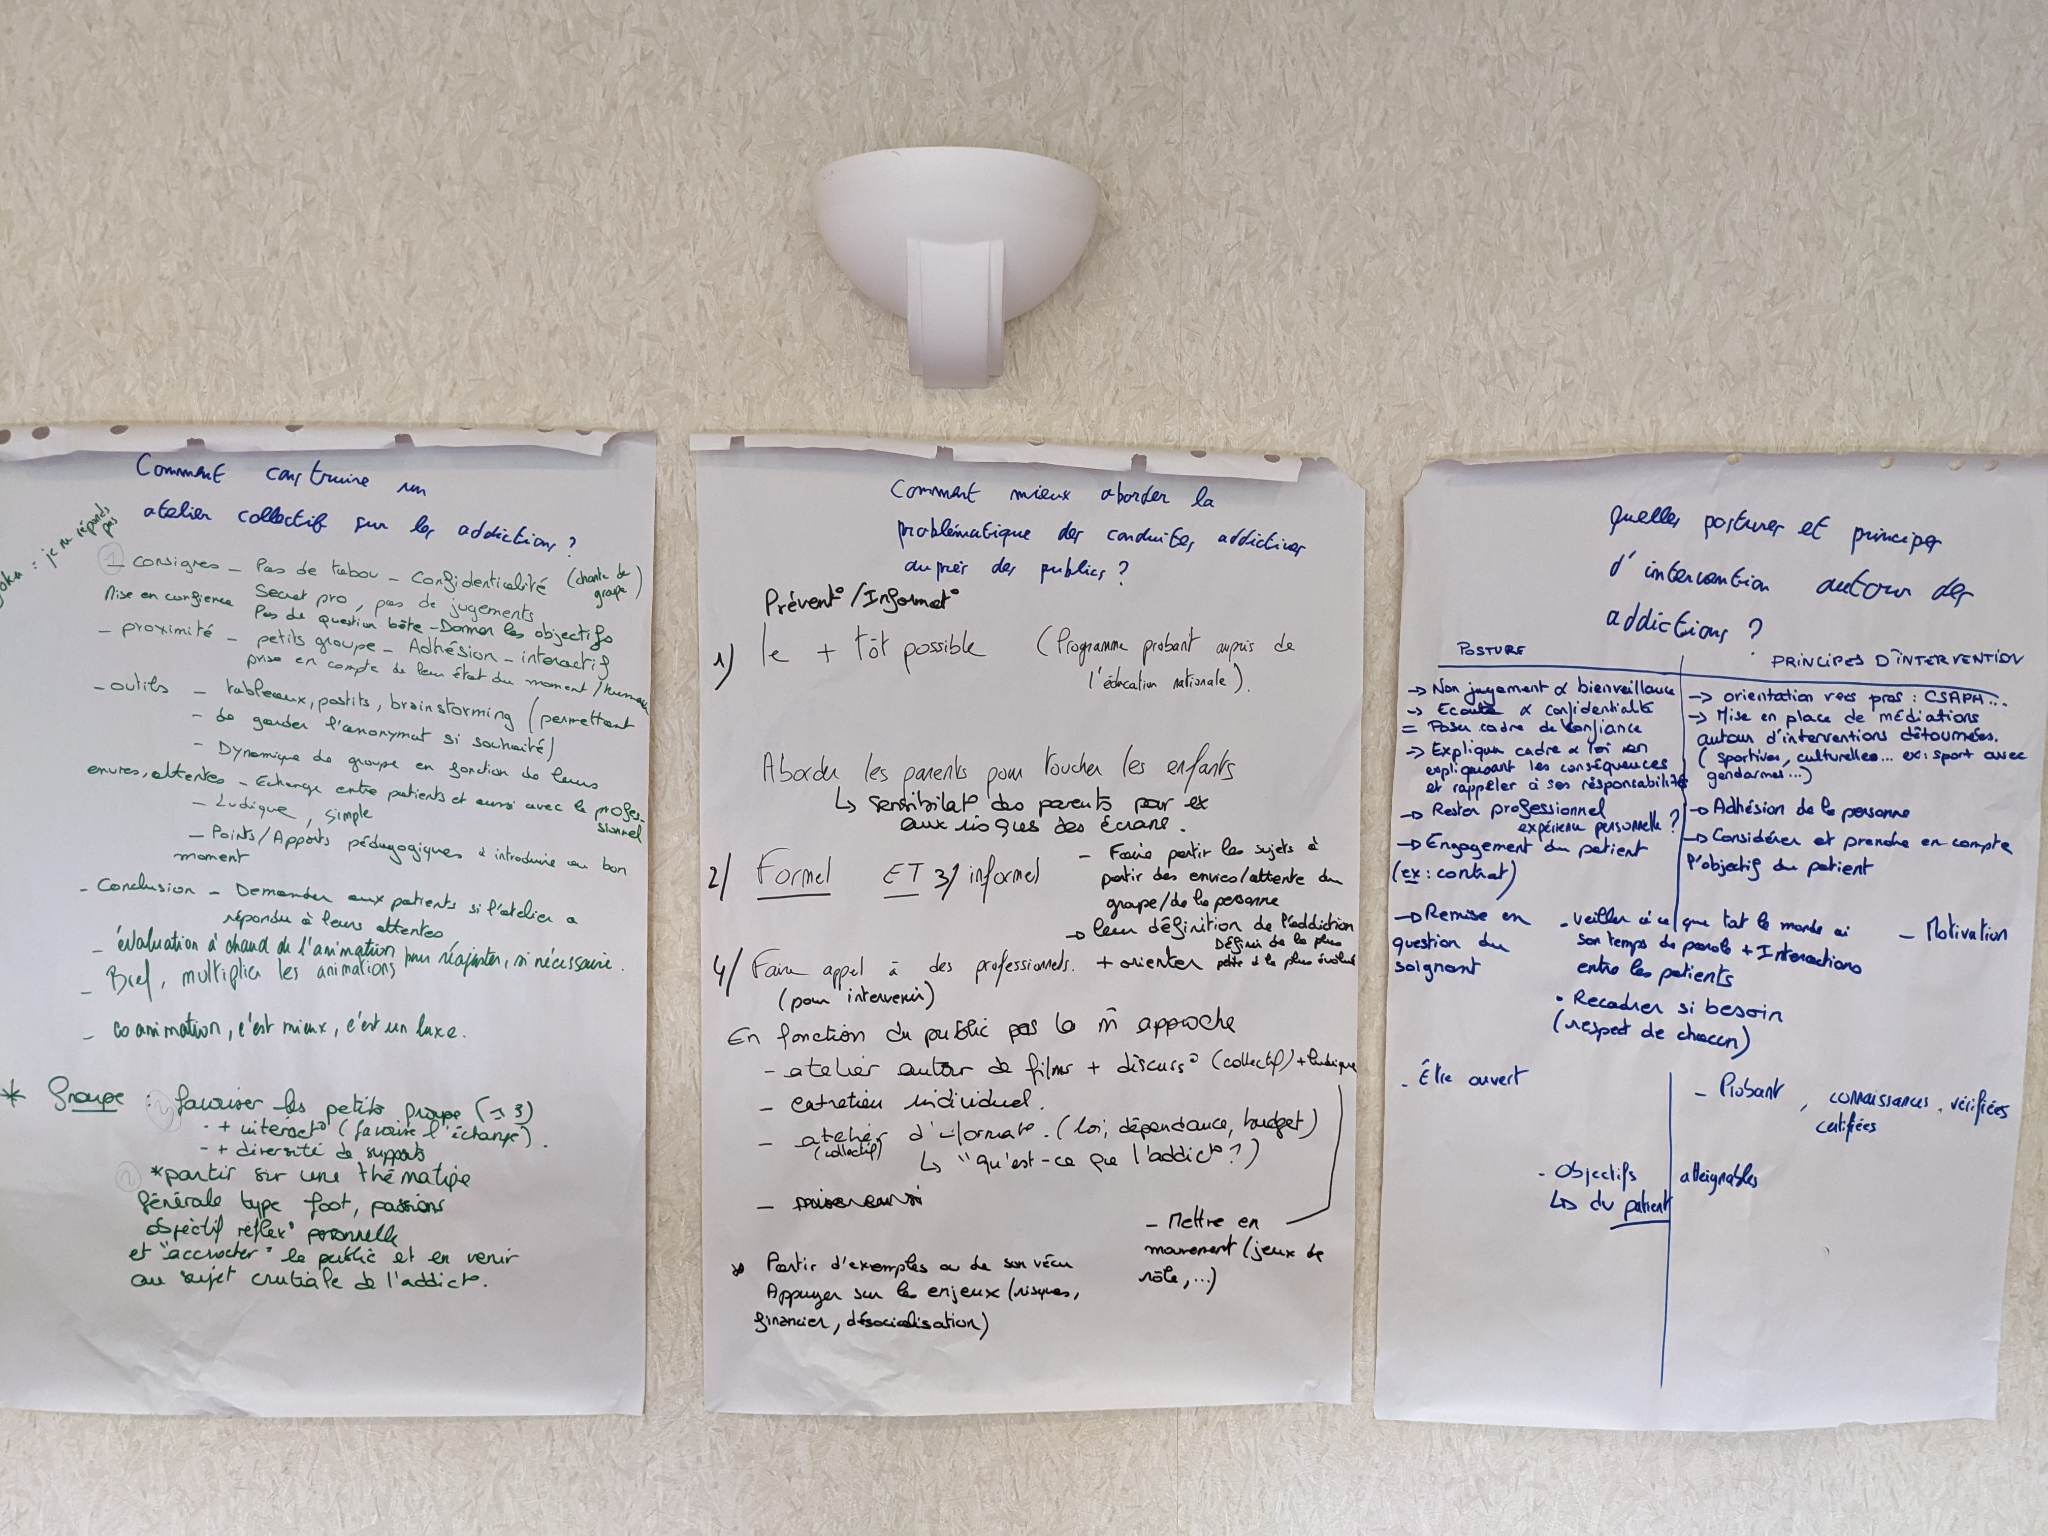 Comment construire un
atelier collectif sur les addictions ?
: je ne réponds
pas
1 - consignes - Pas de tabou - Confidentialité (charte de
groupe)
Mise en confience Secret pro, pas de jugements
Pas de question bête - Donner les objectifs
- proximité - petits groupe - Adhésion - interactif
prise en compte de leur état du moment /
- outils - tableaux, postits, brainstorming (permettant
- de garder l'anonymat si souhaité)
- Dynamique de groupe en fonction de leurs
envies, attentes - Echange entre patients et aussi avec le profes-
sionnel
- Ludique, simple
- Points/Apports pédagogiques à introduire au bon
moment
- Conclusion - Demander aux patients si l'atelier a
répondu à leurs attentes
- évaluation à chaud de l'animation pour réajuster, si nécessaire.
- Bref, multiplier les animations
- co animation, c'est mieux, c'est un luxe.
* Groupe : favoriser les petits groupe
- + interact° (favorise l'échange).
- + diversité de supports
2 * partir sur une thématique
générale type foot, passions
objectif réflex° personnelle
et "accrocher" le public et en venir
au sujet crutiale de l'addict°.
Comment mieux aborder la
problématique des conduites addictives
auprès des publics ?
Prévent°/Informat°
1) le + tôt possible (Programme probant aupuis de
l'éducation nationale).
Aborder les parents pour toucher les enfants
↳ sensibilisat° des parents pour ex
aux risques des écrans.
2/ Formel ET 3/ informel
- Faire partir les sujets à
partir des envies/attente du
groupe/de la personne
→ leur définition de l'addiction
Définir de la plus
petite à la plus évoluée
4/ Faire appel à des professionnels. + orienter
(pour intervenir)
En fonction du public pas la m̂ approche
- atelier autour de films + discuss° (collectif) + ludique
- entretien individuel.
- atelier d'informat°. (loi, dépendance, budget)
(collectif) ↳ "qu'est-ce que l'addict° ?)
-
- Mettre en
mouvement (jeux de
rôle, ...)
Partir d'exemples ou de son vécu
Appuyer sur les enjeux (risques,
financier, désocialisation)
Quelles postures et principes
d'intervention autour des
addictions ?
POSTURE
→ Non jugement & bienveillance
→ Ecoute & confidentialité
= Poser cadre de confiance
→ Expliquer cadre & loi en
expliquant les conséquences
et rappeler à ses résponsabilités
→ Rester professionnel
expérience personnelle ?
→ Engagement du patient
(ex : contrat)
→ Remise en
question du
soignant
- Être ouvert
PRINCIPES D'INTERVENTION
→ orientation vers pros : CSAPA...
→ Mise en place de médiations
autour d'interventions détournées.
(sportives, culturelles... ex : sport avec
gendarmes...)
→ Adhésion de la personne
→ Considérer et prendre en compte
l'objectif du patient
- veiller à ce que tout le monde ai
son temps de parole + Interactions
entre les patients
- Motivation
• Recadrer si besoin
(respect de chacun)
- Probant, connaissances vérifiées
certifiées
- Objectifs atteignables
↳ du patient